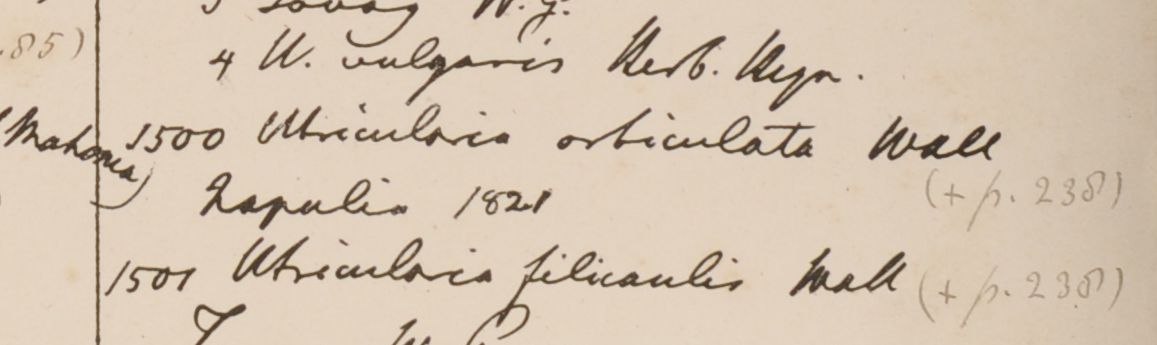 85)
4 U. vulgaris Herb. Heyn.
Mahonia)
1500 Utricularia orbiculata Wall
Napalia 1821 (+ p. 238)
1501 Utricularia filicaulis Wall (+ p. 238)